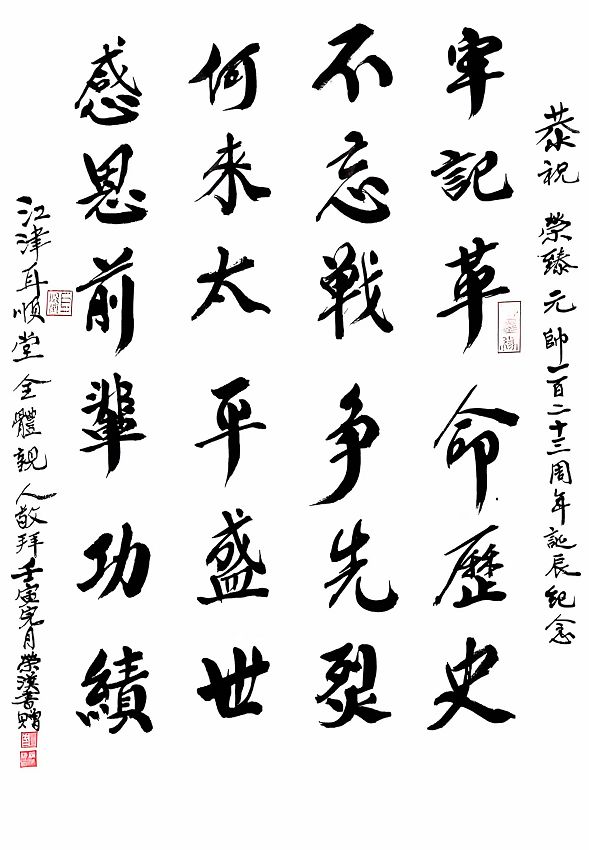 恭祝 榮臻元帥一百二十三周年誕辰紀念
牢記革命歷史
不忘戦争先烈
何来太平盛世
感恩前輩功績
江津耳順堂全體親人敬拜壬寅月榮漢書贈